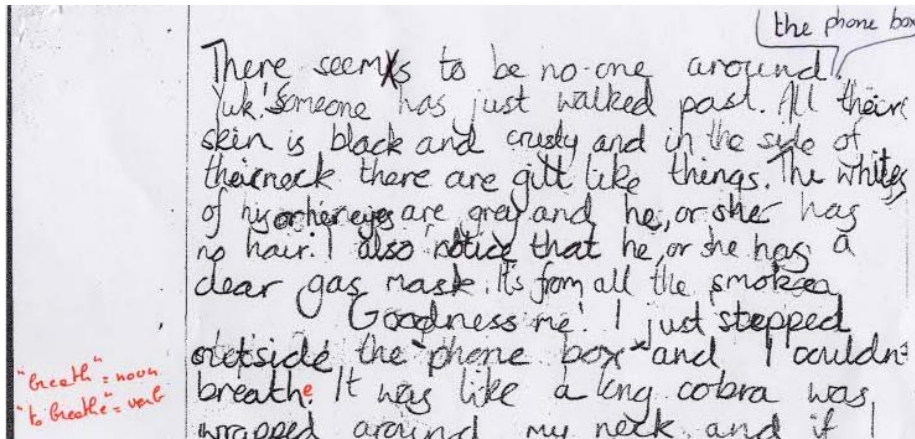 the phone box
There seems to be no-one around.
Yuk! Someone has just walked past. All their
skin is black and crusty and in the side of
their neck there are gill like things. The whites
of his or her eyes are grey and he, or she has
no hair. I also notice that he, or she has a
clear gas mask. It's from all the
Goodness me! I just stepped
outside the phone box and I couldn't
"breath" = noun
breathe. It was like a king cobra was
"to breathe" = verb
wrapped around my neck and if I